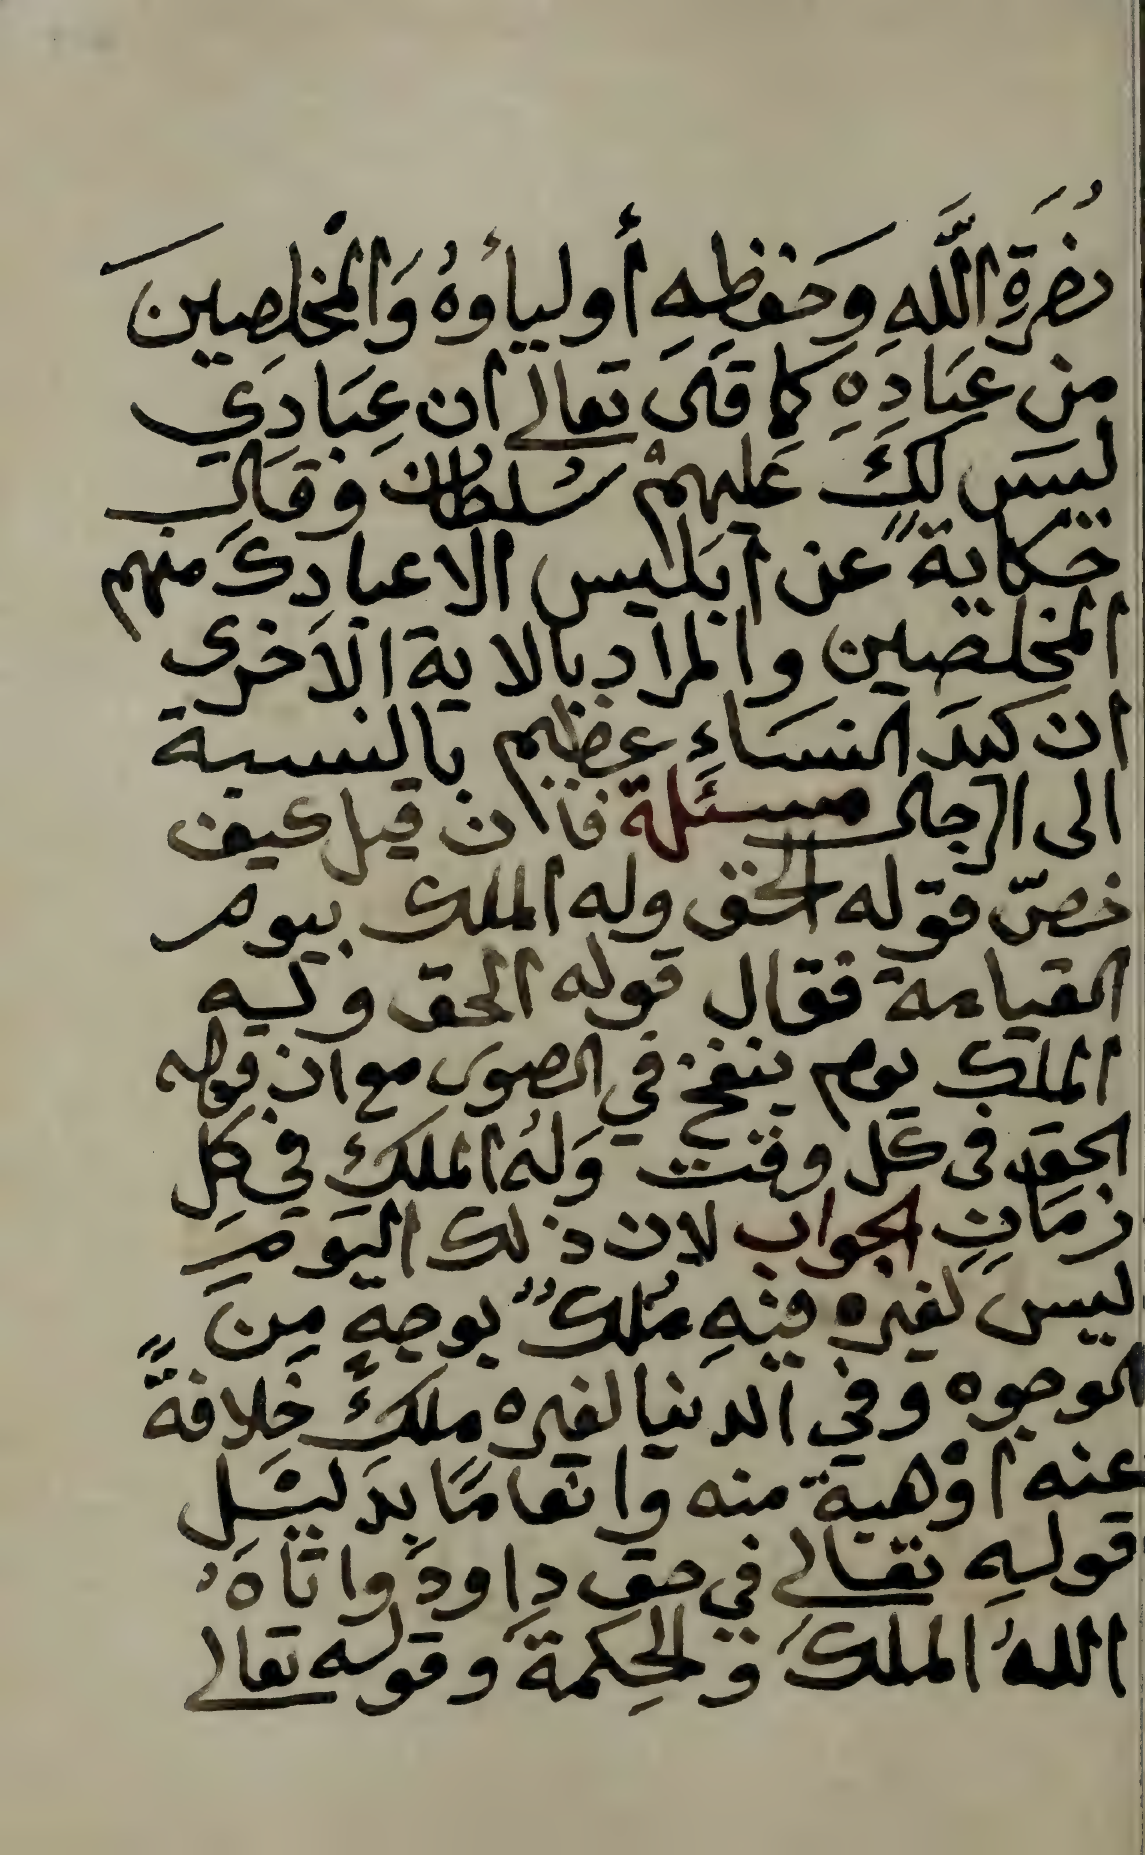 نصرَةِ اللَّهِ وحَفظِهِ أوليأوُهُ وَالْمُخلِصِينَ
من عِبَادِهِ كما قال تعالى ان عِبَادِي
ليسَ لكَ عَليهِمْ سُلطان وقال
حكايةً عن ابليس الا عبادكَ منهم
المخلصين والمراد بالاية الاخرى
ان كيدَ النسَاءِ عظيم بالنسبة
الى الرجال مسئلة فان قيل كيف
خصّ قوله الحق وله الملك بيوم
القيامة فقال قوله الحق وله
الملك يوم ينفخ في الصور مع ان قوله
الحق في كل وقت وَلهُ الملكُ في كل
زمَانٍ الجواب لان ذلك اليَومَ
ليس لغيره فيهِ مُلكٌ بوجهٍ مِنَ
الوجوه وفي الدنيا لغيره ملكٌ خلافةً
عنه اوْهبة منه وانعامًا بِدَليل
قولهِ تعالى في حق داودَ واتاهُ
اللهُ الملكَ والحِكمة وقوله تعالى